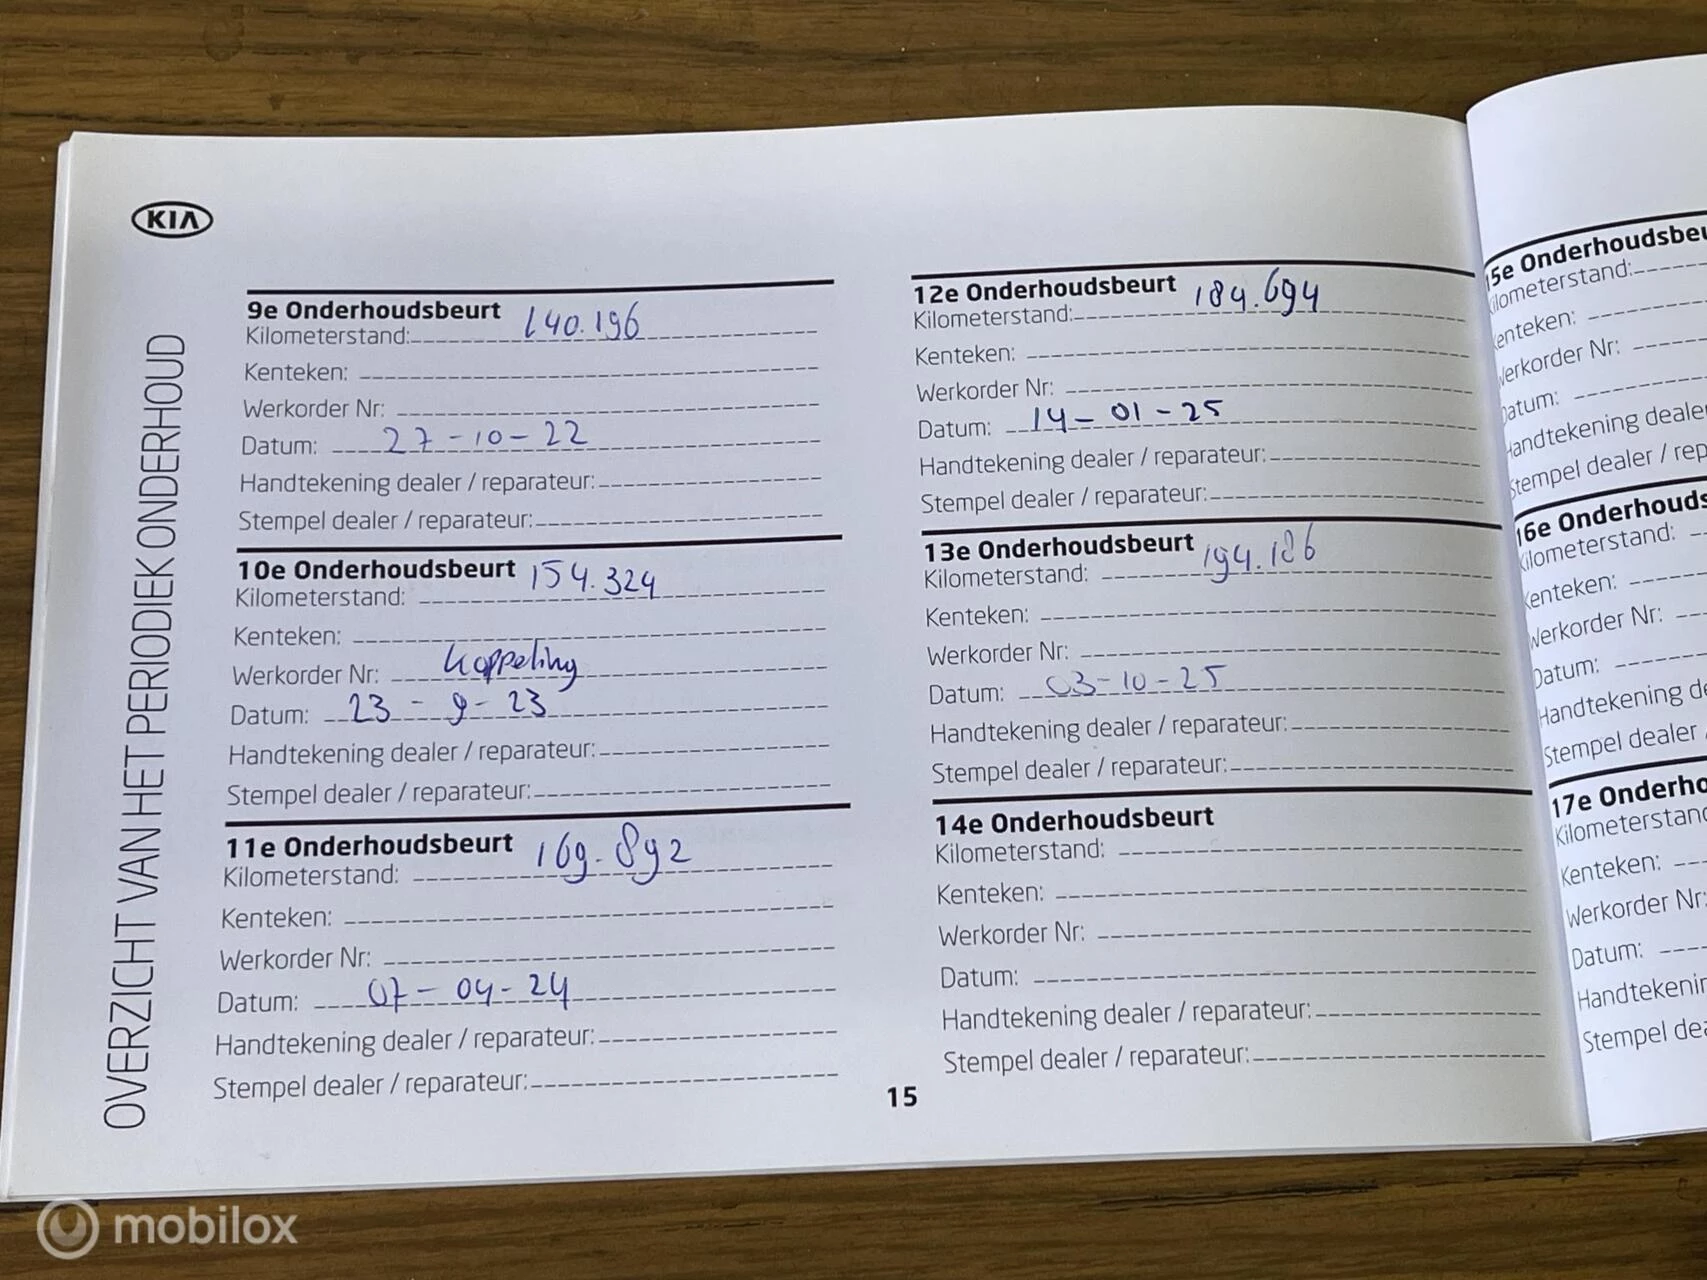 KIA
OVERZICHT VAN HET PERIODIEK ONDERHOUD
9e Onderhoudsbeurt
Kilometerstand: 140.196
Kenteken:
Werkorder Nr:
Datum: 27-10-22
Handtekening dealer / reparateur:
Stempel dealer / reparateur:
10e Onderhoudsbeurt
Kilometerstand: 154.324
Kenteken:
Werkorder Nr: Koppeling
Datum: 23-9-23
Handtekening dealer / reparateur:
Stempel dealer / reparateur:
11e Onderhoudsbeurt
Kilometerstand: 169.892
Kenteken:
Werkorder Nr:
Datum: 07-04-24
Handtekening dealer / reparateur:
Stempel dealer / reparateur:
12e Onderhoudsbeurt
Kilometerstand: 184.694
Kenteken:
Werkorder Nr:
Datum: 14-01-25
Handtekening dealer / reparateur:
Stempel dealer / reparateur:
13e Onderhoudsbeurt
Kilometerstand: 194.186
Kenteken:
Werkorder Nr:
Datum: 03-10-25
Handtekening dealer / reparateur:
Stempel dealer / reparateur:
14e Onderhoudsbeurt
Kilometerstand:
Kenteken:
Werkorder Nr:
Datum:
Handtekening dealer / reparateur:
Stempel dealer / reparateur:
15
15e Onderhoudsbeu
Kilometerstand:
Kenteken:
Werkorder Nr:
Datum:
Handtekening dealer
Stempel dealer / rep
16e Onderhouds
Kilometerstand:
Kenteken:
Werkorder Nr:
Datum:
Handtekening de
Stempel dealer
17e Onderho
Kilometerstand
Kenteken:
Werkorder Nr:
Datum:
Handtekenin
Stempel dea
mobilox